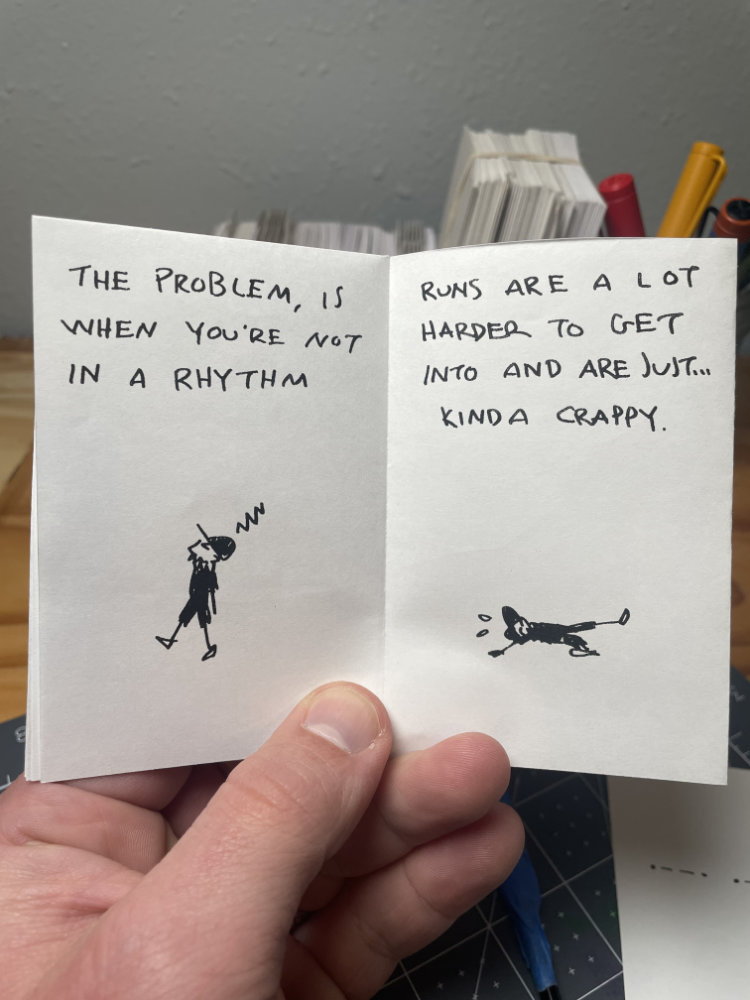 THE PROBLEM, IS
WHEN YOU'RE NOT
IN A RHYTHM
RUNS ARE A LOT
HARDER TO GET
INTO AND ARE JUST...
KINDA CRAPPY.